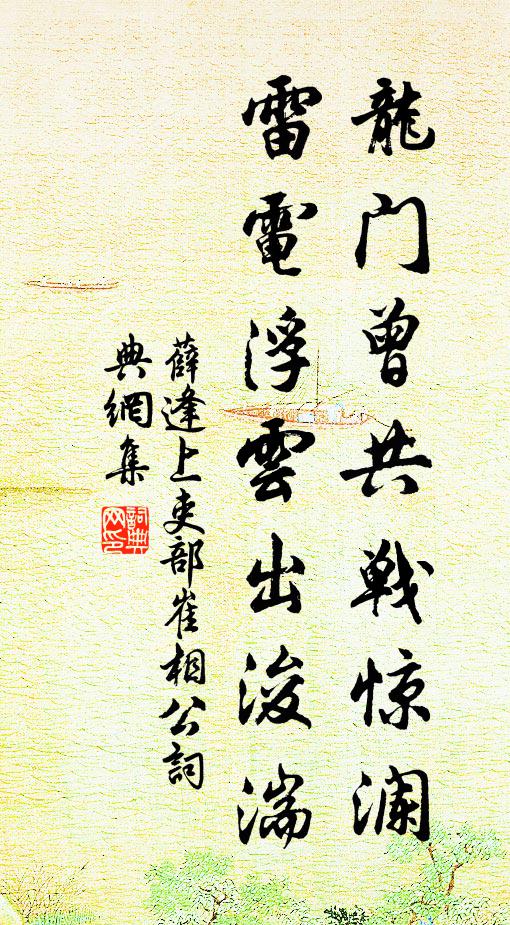 龍门曾共戦惊澜
雷電浮雲出浚湍
薛逢上吏部崔相公詞
典網集
詞典网印